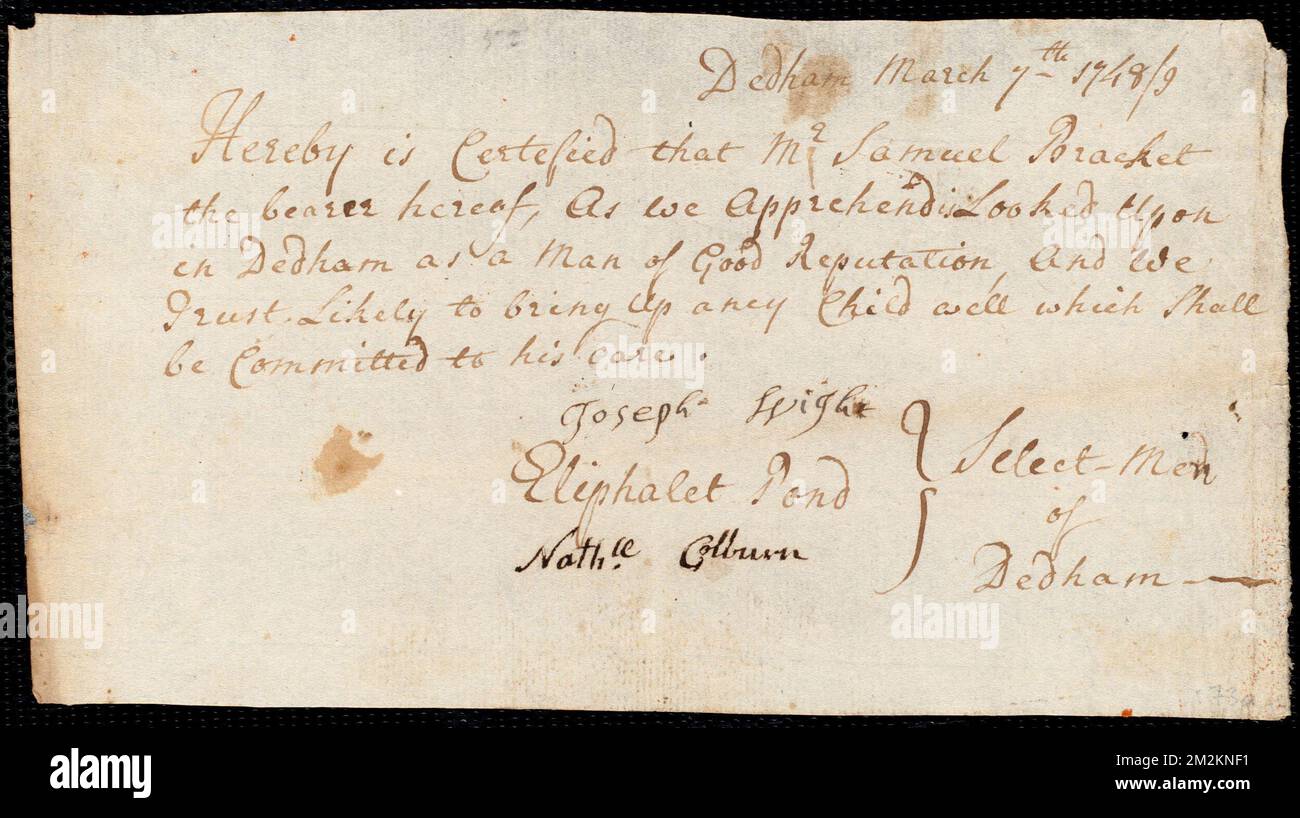 Dedham March 7th 1748/9
Hereby is Certefied that Mr Samuel Bracket
the bearer hereof, As we Apprehend is Looked Upon
in Dedham as a Man of Good Reputation, And we
Trust Likely to bring Up aney Child well which Shall
be Committed to his Care.
Joseph Wight
Eliphalet Pond
Nathll Colburn
Select-Men
of
Dedham
alamy
Image ID: 2M2KNF1
www.alamy.com